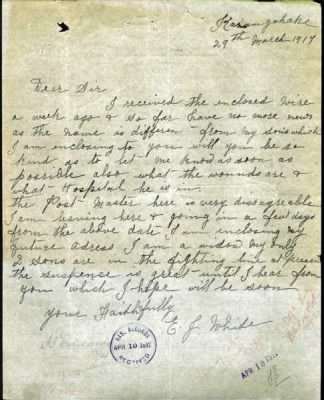 Karangahake
29th March 1917
Dear Sir
I received the enclosed wire
a week ago & so far have no more news
as the name is different from my sons which
I am inclosing to you will you be so
kind go to let me know as soon as
possible also what the wounds are &
what Hospital he is in.
the Post Master here is very disagreable
I am leaving here & going in a few days
from the above date, I am inclosing my
future adress I am a widow My only
2 sons are in the fighting line at present
the suspense is great until I hear from
you which I hope will be soon
yours Faithfully
E J White
RECORDS
APR 10 1917
RECEIVED
APR 10 1917